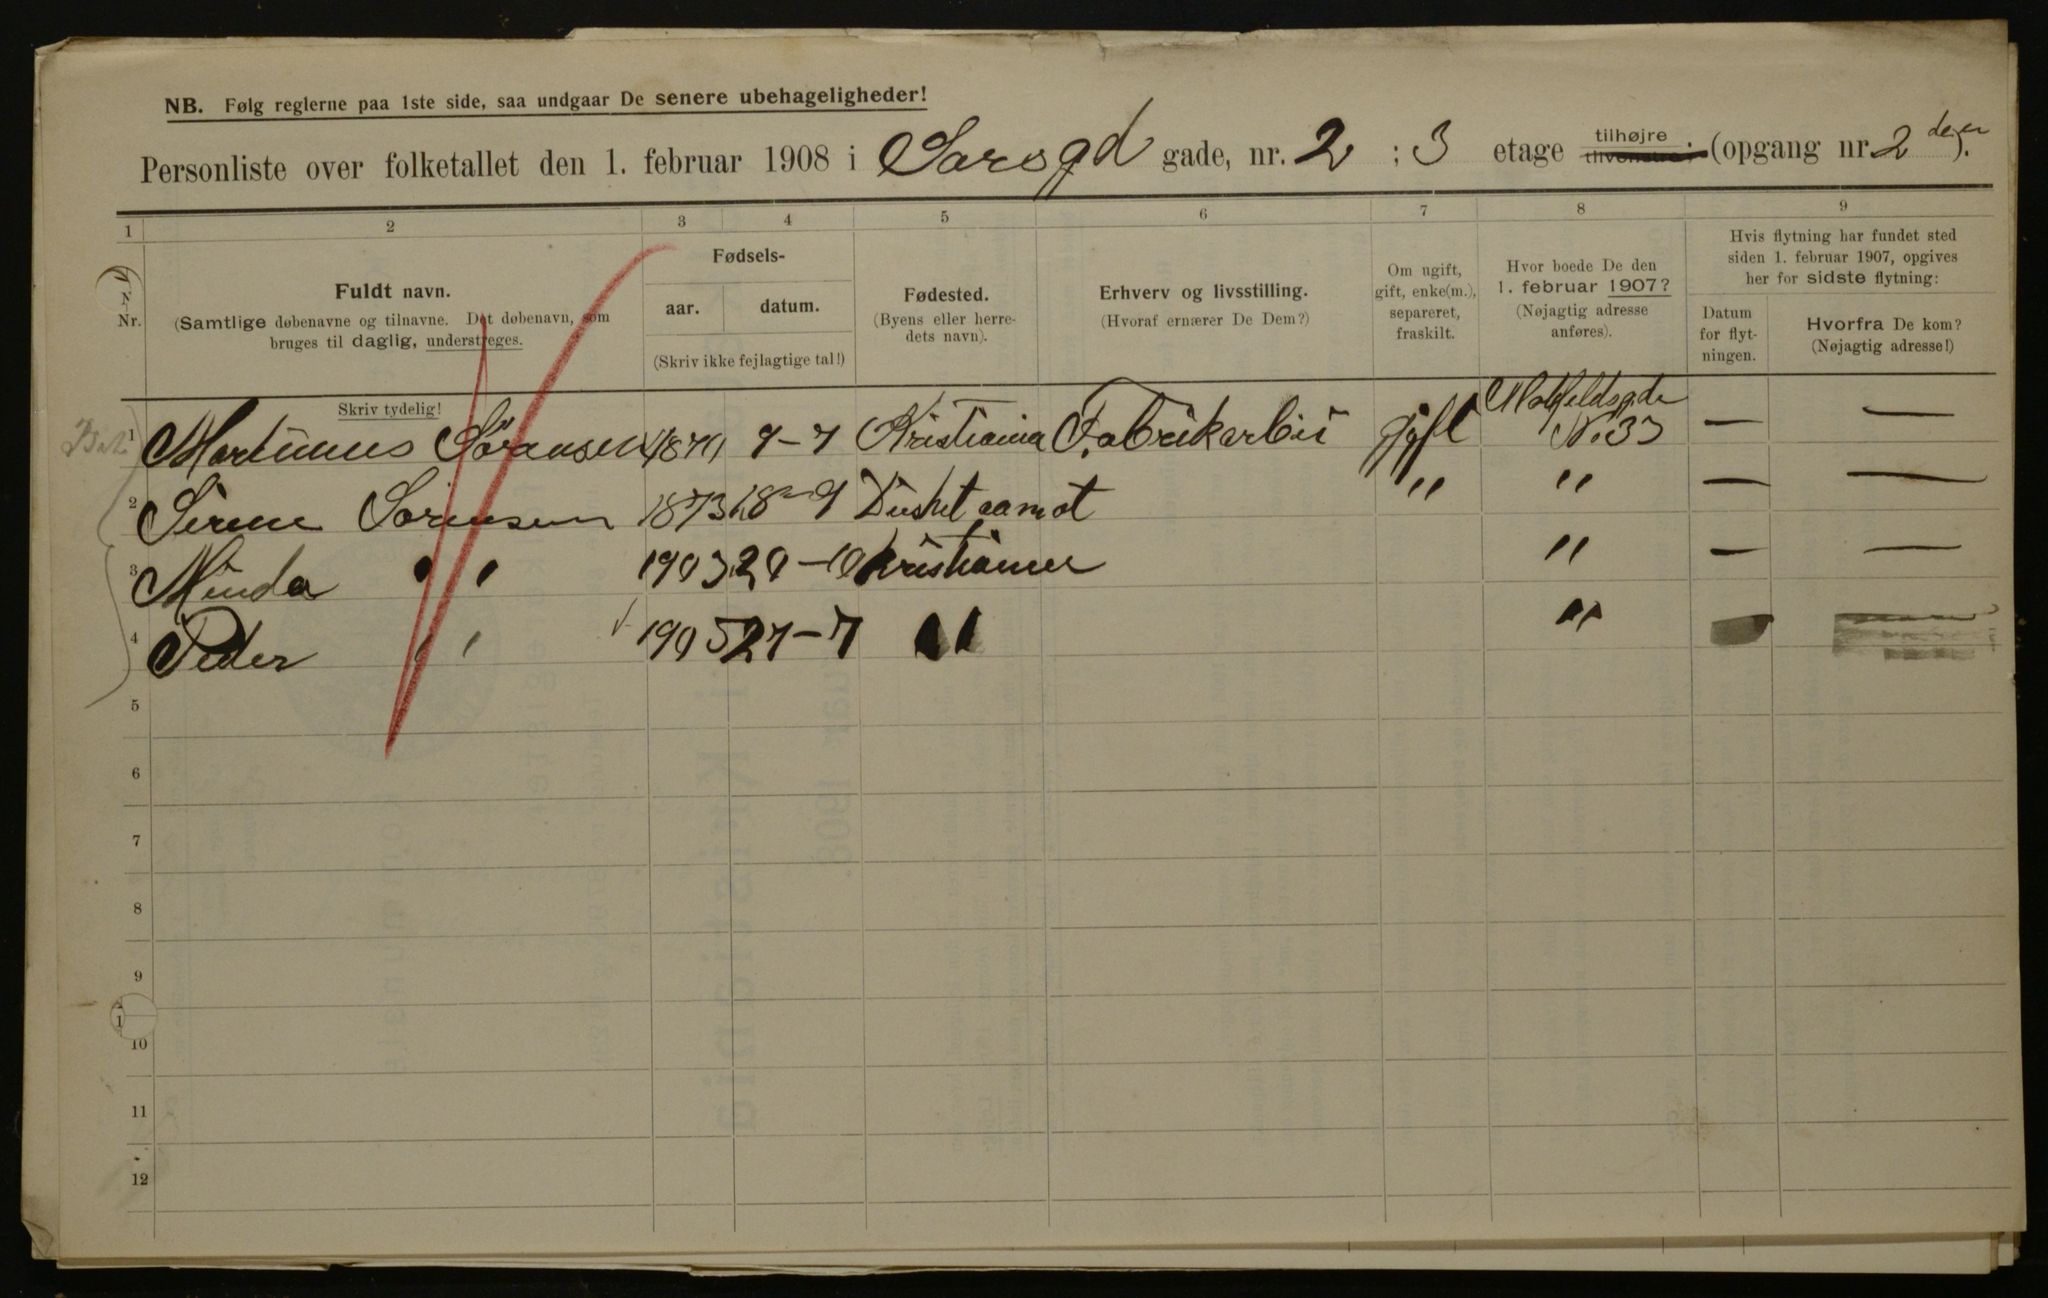 NB. Følg reglerne paa 1ste side, saa undgaar De senere ubehageligheder!
Personliste over folketallet den 1. februar 1908 i Sarsgd gade, nr. 2 ; 3 etage tilhøjre tilvenstre (opgang nr. 2 ).
1 2 3 4 5 6 7 8 9
Nr.
Fuldt navn.
(Samtlige døbenavne og tilnavne. Det døbenavn, som
bruges til daglig, understreges.
Skriv tydelig!
Fødsels-
aar. datum.
(Skriv ikke fejlagtige tal!)
Fødested.
(Byens eller herre-
dets navn).
Erhverv og livsstilling.
(Hvoraf ernærer De Dem?)
Om ugift,
gift, enke(m.),
separeret,
fraskilt.
Hvor boede De den
1. februar 1907?
(Nøjagtig adresse
anføres).
Hvis flytning har fundet sted
siden 1. februar 1907, opgives
her for sidste flytning:
Datum
for flyt-
ningen.
Hvorfra De kom?
(Nøjagtig adresse!)
1 Martinius Sörensen 9-7 Kristiania Fabrikarbei gift No 33 — —
2 Serene Sorensen 1873 18-9 " " — —
3 Minda " 1903 29-10 Kristiania " — —
4 Peder " 1905 27-7 " "
5
6
7
8
9
10
11
12